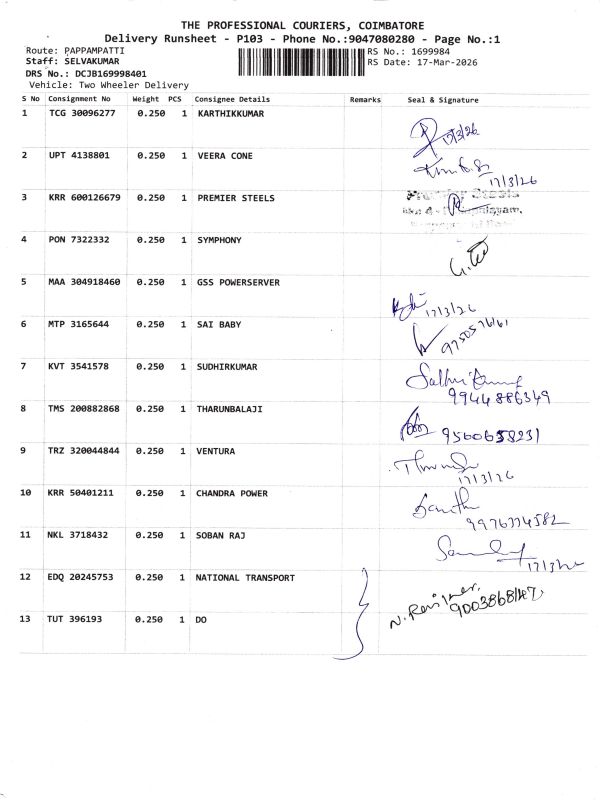 THE PROFESSIONAL COURIERS, COIMBATORE
Delivery Runsheet - P103 - Phone No.:9047080280 - Page No.:1
Route: PAPPAMPATTI
RS No.: 1699984
Staff: SELVAKUMAR
RS Date: 17-Mar-2026
DRS No.: DCJB169998401
Vehicle: Two Wheeler Delivery
S No Consignment No Weight PCS Consignee Details Remarks Seal & Signature
1 TCG 30096277 0.250 1 KARTHIKKUMAR
2 UPT 4138801 0.250 1 VEERA CONE
17/3/26
3 KRR 600126679 0.250 1 PREMIER STEELS
Premier Steels
4 PON 7322332 0.250 1 SYMPHONY
5 MAA 304918460 0.250 1 GSS POWERSERVER
17/3/26
6 MTP 3165644 0.250 1 SAI BABY
7 KVT 3541578 0.250 1 SUDHIRKUMAR
9944886349
8 TMS 200882868 0.250 1 THARUNBALAJI
9560658231
9 TRZ 320044844 0.250 1 VENTURA
17/3/26
10 KRR 50401211 0.250 1 CHANDRA POWER
9976774582
11 NKL 3718432 0.250 1 SOBAN RAJ
12 EDQ 20245753 0.250 1 NATIONAL TRANSPORT
13 TUT 396193 0.250 1 DO